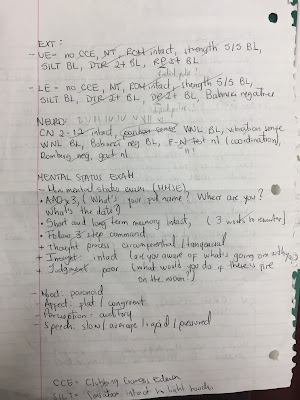 EXT:
- UE - no CCE, NT, ROM intact, strength 5/5 BL,
SILT BL, DTR 2+ BL, RP 2+ BL
radial pulse
- LE - no CCE, NT, ROM intact, strength 5/5 BL,
SILT BL, DTR 2+ BL, DP 2+ BL, Babinski negative
NEURO:
CN 2-12 intact, position sense WNL BL, vibration sense
WNL BL, Babinski neg BL, F-N test nl (coordination),
Romberg neg, gait nl
MENTAL STATUS EXAM
- Mini mental status exam (MMSE)
• AAO x 3, (What's your full name? Where are you?
What's the date?)
• Short and long term memory intact, (3 words to remember)
• Follows 3 step command
• thought process: circumferential / tangential
• Insight: intact (are you aware of what's going on with you?)
• Judgment poor (what would you do if there's fire
in the room?)
Mood: paranoid
Affect: flat / congruent
Perception: auditory
Speech: slow / average / rapid / pressured
CCE = Clubbing Cyanosis Edema
SILT = Sensation intact to light touch